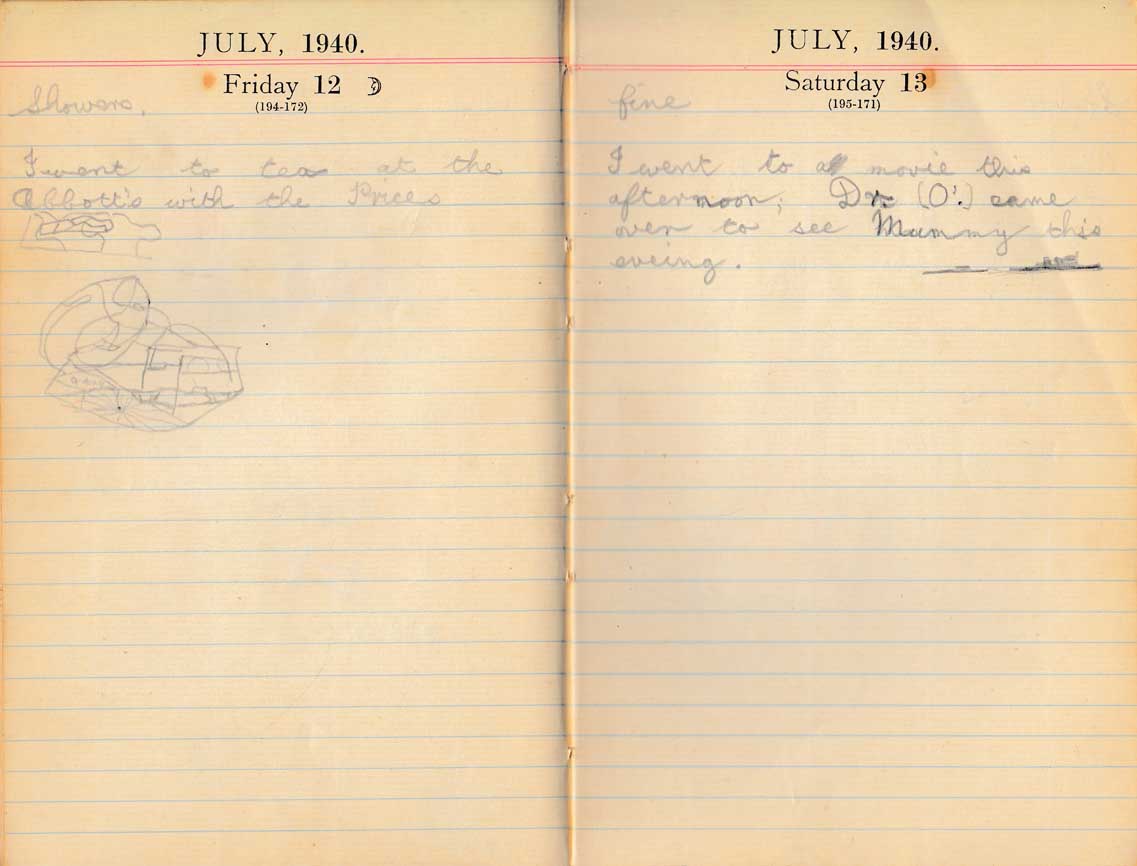 JULY, 1940.
Friday 12
(194-172)
Showers.
I went to tea at the
Abbott's with the Prices
JULY, 1940.
Saturday 13
(195-171)
fine
I went to a movie this
afternoon; Dr (O'.) came
over to see Mummy this
eveing.